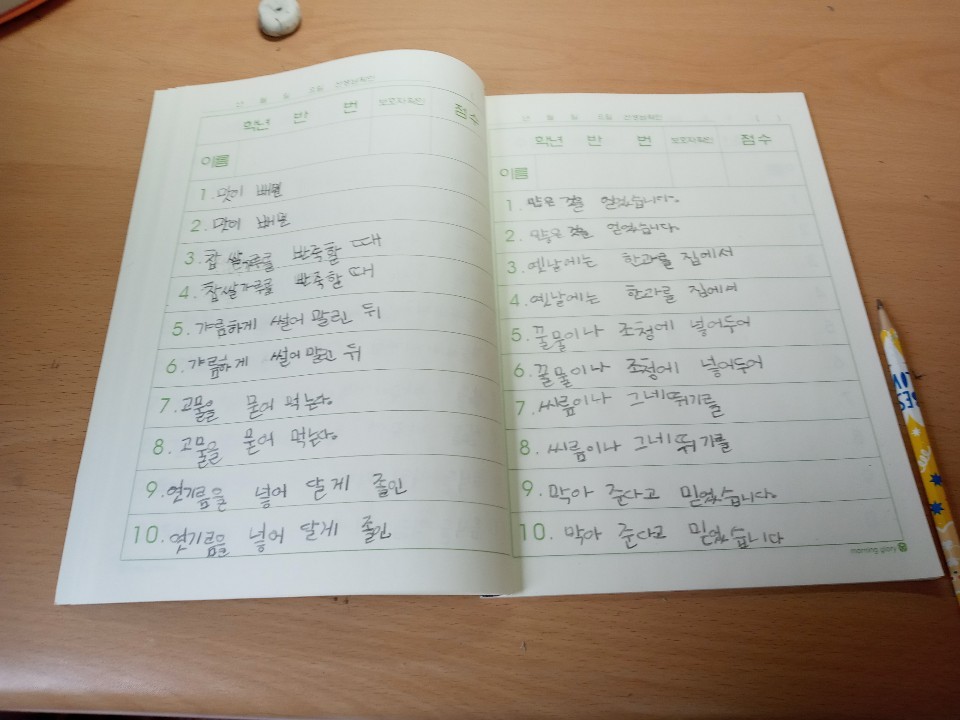 년 월 일 요일 선생님확인
학년 반 번 보호자확인 점수
이름
1. 맛이 배
2. 맛이 배
3. 찹쌀가루를 반죽할 때
4. 찹쌀가루를 반죽할 때
5. 갸름하게 썰어 말린 뒤
6. 갸름하게 썰어 말린 뒤
7. 고물을 묻어 먹는다.
8. 고물을 묻어 먹는다.
9. 엿기름을 넣어 달게 졸인
10. 엿기름을 넣어 달게 졸인
년 월 일 요일 선생님확인 ( )
학년 반 번 보호자확인 점수
이름
1. 많은 것을 얻었습니다.
2. 많은 것을 얻었습니다.
3. 옛날에는 한과를 집에서
4. 옛날에는 한과를 집에서
5. 꿀물이나 조청에 넣어두어
6. 꿀물이나 조청에 넣어두어
7. 씨름이나 그네뛰기를
8. 씨름이나 그네뛰기를
9. 막아 준다고 믿었습니다.
10. 막아 준다고 믿었습니다
morning glory